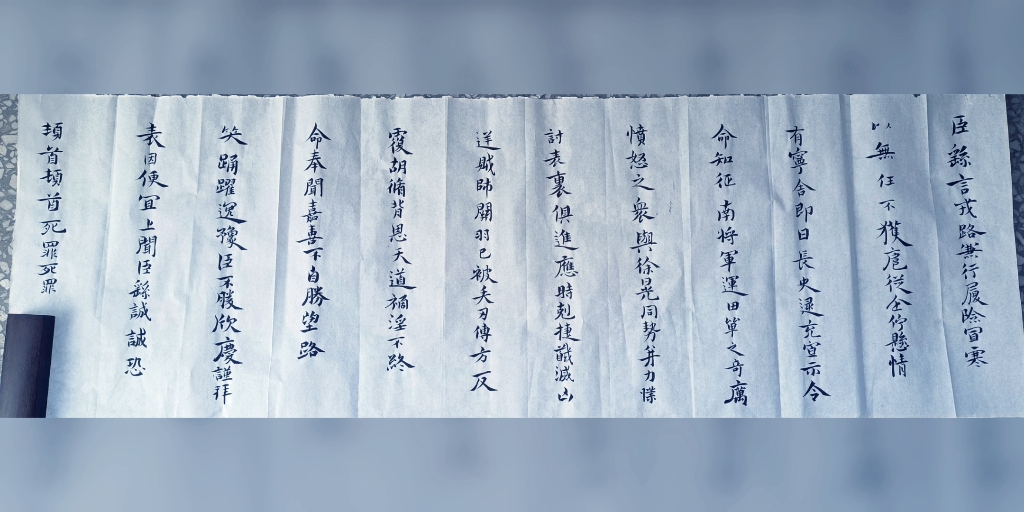 臣繇言戎路兼行履險冒寒
以無任不獲扈從企佇懸情
有寧舍即日長史逯充宣示令
命知征南將軍運田單之奇厲
憤怒之衆與徐晃同勢并力撲
討表裏俱進應時剋捷馘滅凶
逆賊帥關羽已被矢刃傅方反
覆胡脩背恩天道禍淫不終
命奉聞嘉喜不自勝望路
笑踊躍逸豫臣不勝欣慶謹拜
表因便宜上聞臣繇誠誠恐
頓首頓首死罪死罪